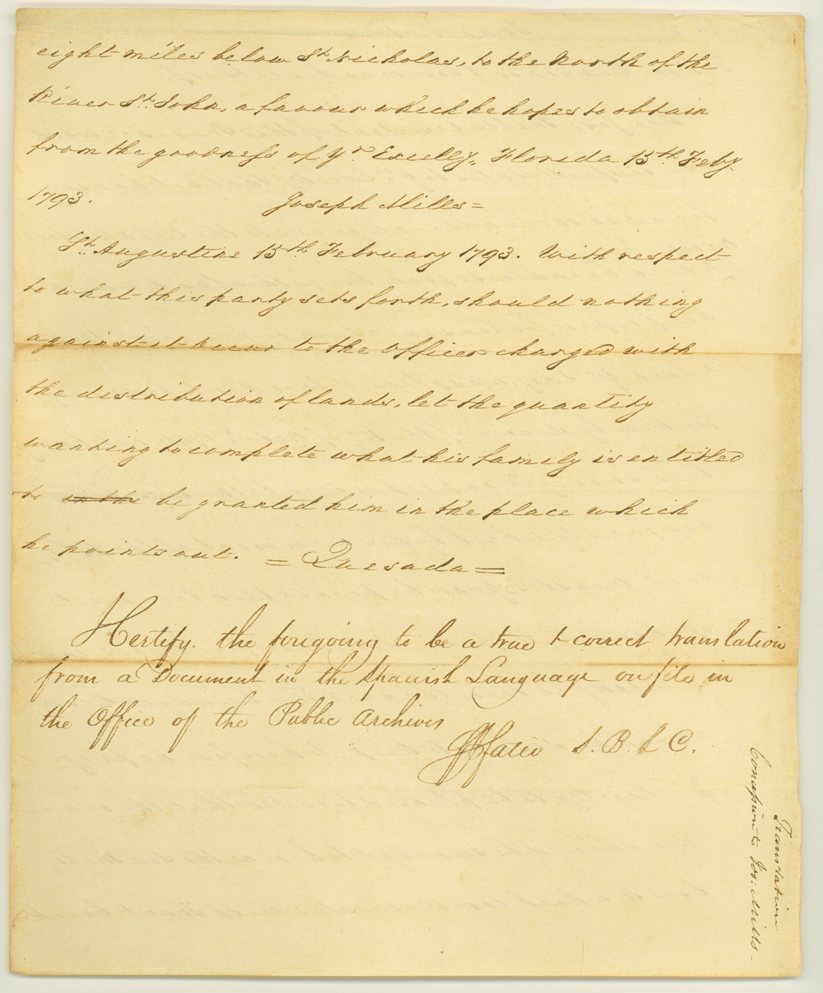 eight miles below St. Nicholas, to the North of the
River St. John, a favour which he hopes to obtain
from the goodness of Yr. Excelly, Florida 15th Feby
1793. Joseph Mills =
St. Augustine 15th February 1793. With respect
to what this party sets forth, should nothing
against it occur to the officer charged with
the distribution of lands, let the quantity
wanting to complete what his family is entitled
to in the be granted him in the place which
he points out. = Quesada =
I Certify the foregoing to be a true & correct translation
from a Document in the Spanish Language on file in
the Office of the Public Archives
Fatio S. B. L C.
Translation
Concession to Jos. Mills -